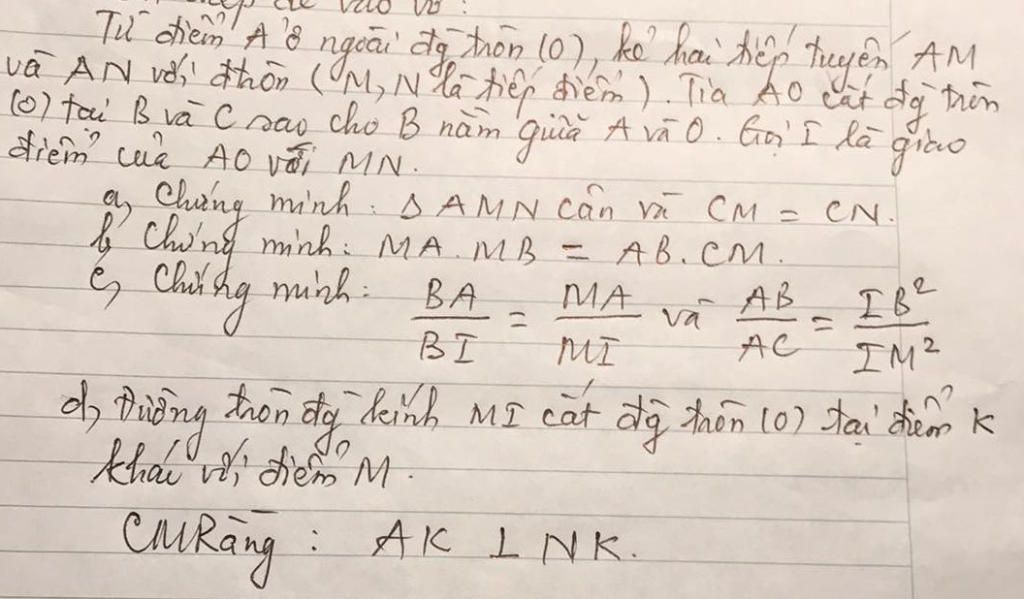 vào vở :
Từ điểm A ở ngoài đg tròn (O), kẻ hai tiếp tuyến AM
và AN với đtròn (M, N là tiếp điểm). Tia AO cắt đg tròn
(O) tại B và C sao cho B nằm giữa A và O. Gọi I là giao
điểm của AO với MN.
a, Chứng minh: Δ AMN cân và CM = CN.
b, Chứng minh: MA. MB = AB. CM.
c, Chứng minh: BA/BI = MA/MI và AB/AC = IB²/IM²
d, Đường tròn đg kính MI cắt đg tròn (O) tại điểm K
khác với điểm M.
CMRằng : AK ⊥ NK.